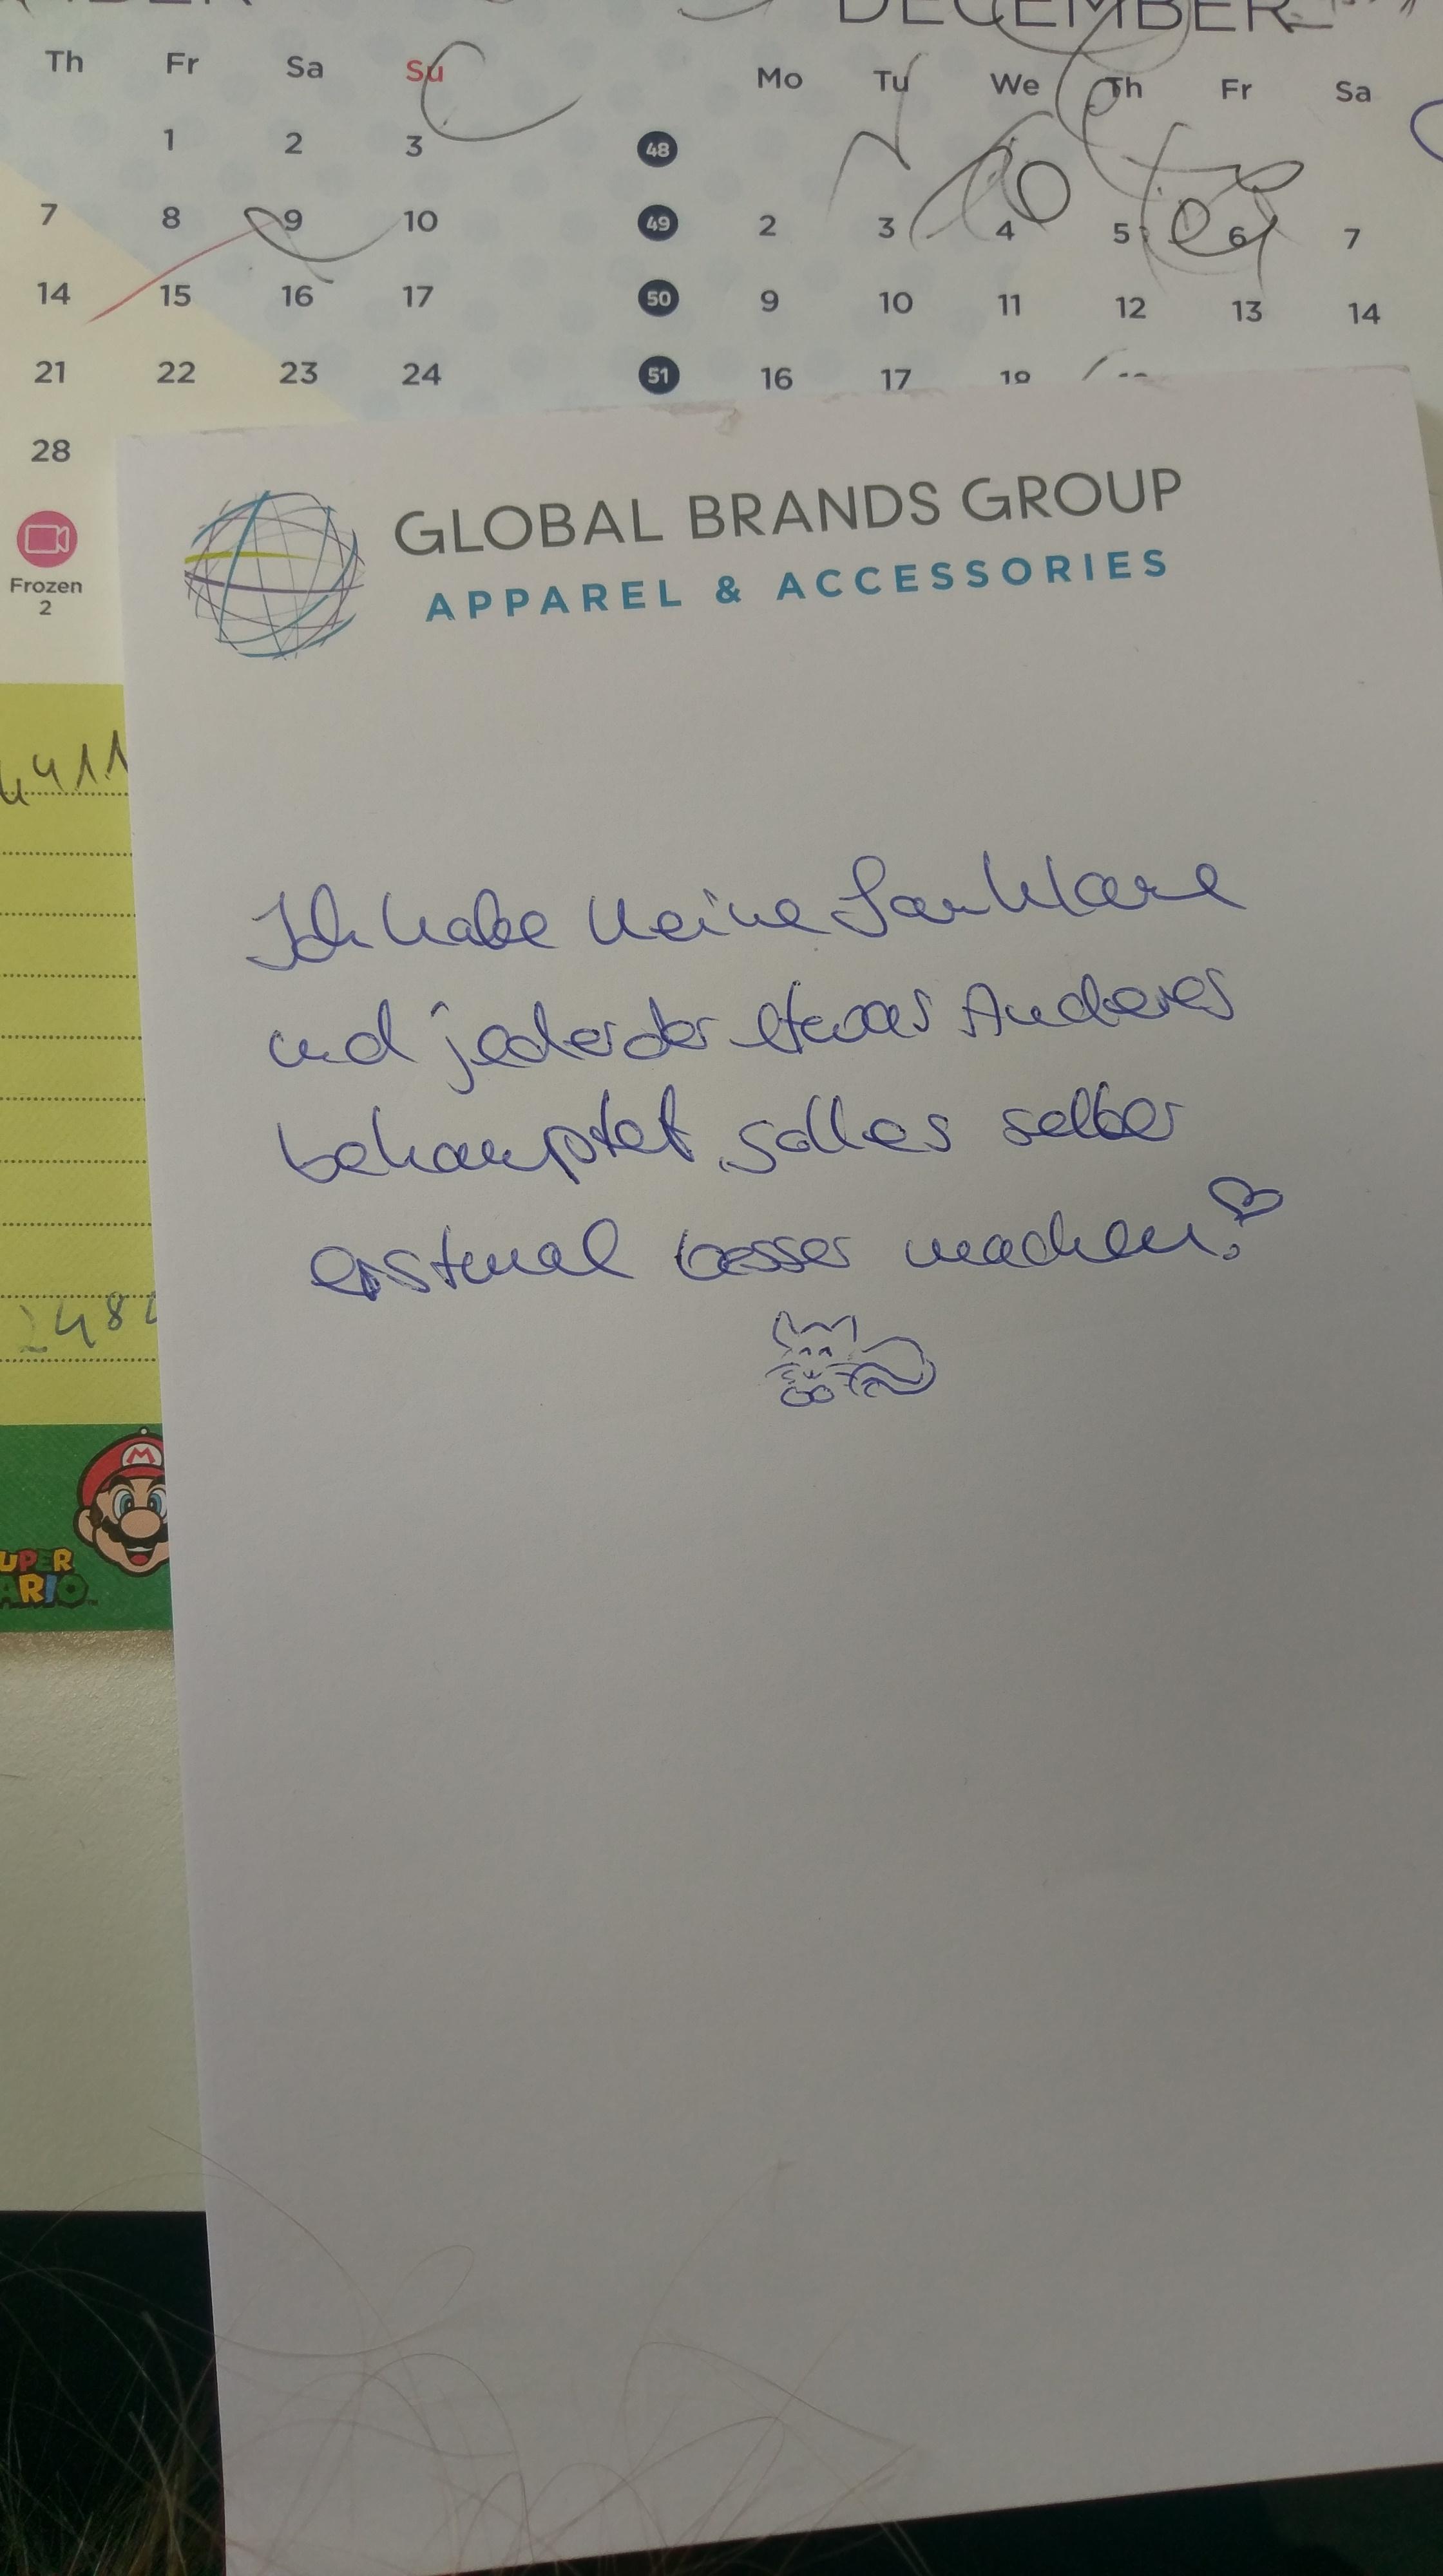 DECEMBER
Th Fr Sa Su
1 2 3
7 8 9 10
14 15 16 17
21 22 23 24
28
Frozen
2
Mo Tu We Th Fr Sa
48
49 2 3 4 5 6 7
50 9 10 11 12 13 14
51 16 17
GLOBAL BRANDS GROUP
APPAREL & ACCESSORIES
Ich habe keine Sauklaue
und jeder der etwas Anderes
behauptet solles selber
erstmal besser machen!
M
UPER
ARIO